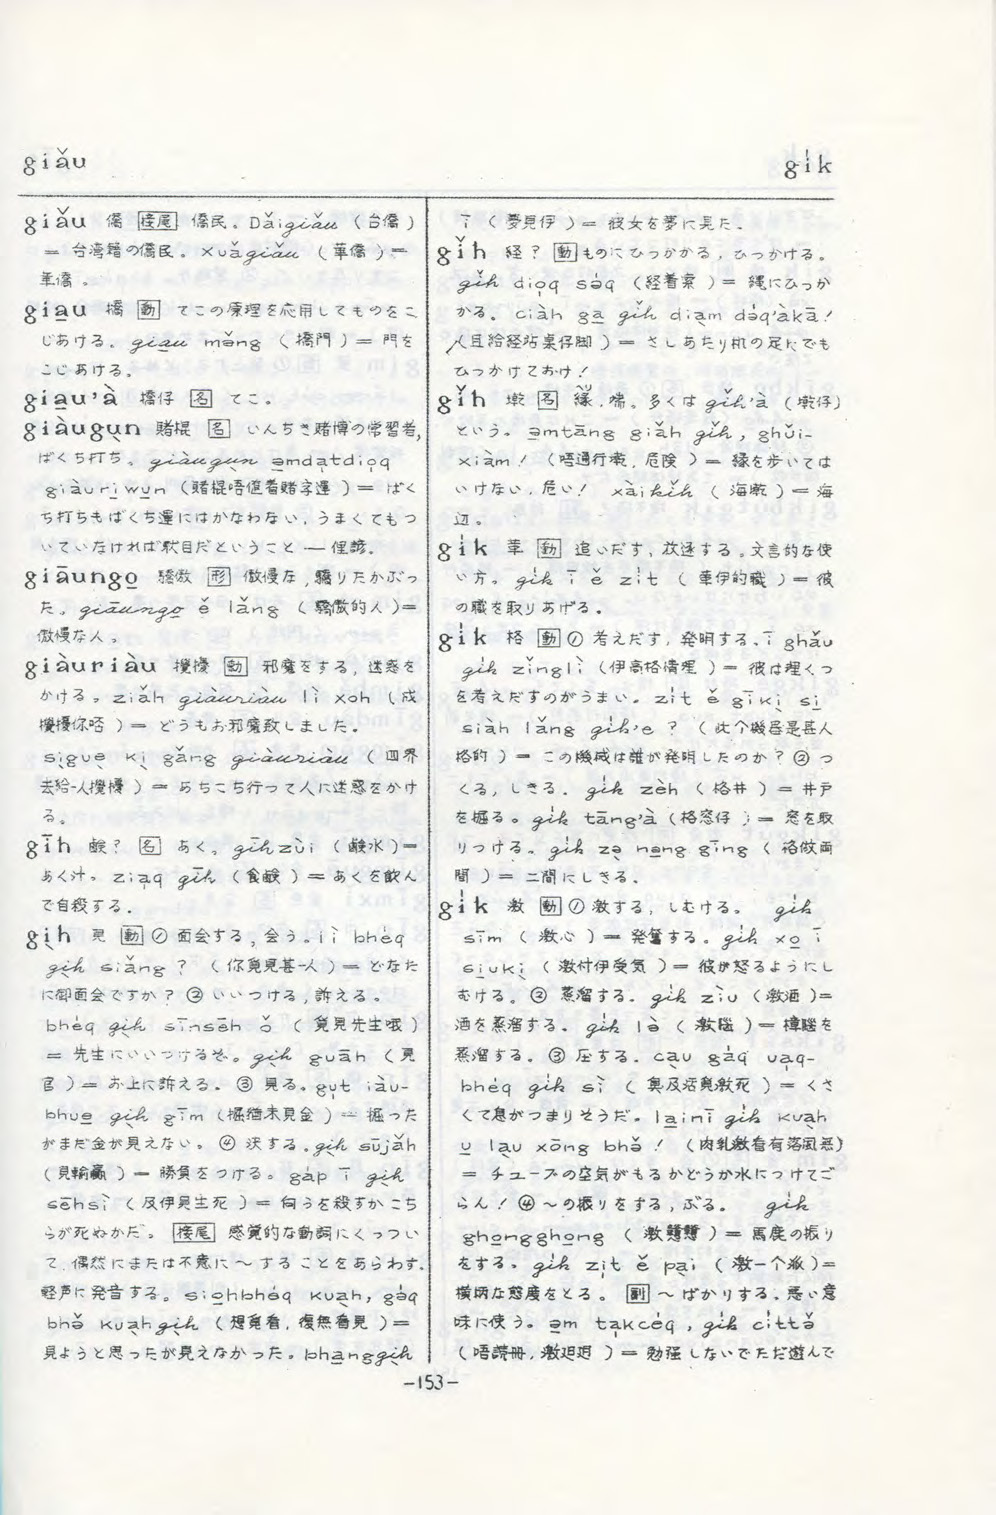 giǎu
gi̍k
giǎu 僑 接尾 僑民。Dǎigiǎu (台僑)
= 台湾籍の僑民。xuǎgiǎu (華僑) =
華僑。
gia̱u 撟 動 てこの原理を応用してものをこ
じあける。gia̱u mǎng (撟門) = 門を
こじあける。
gia̱u'à 撟仔 名 てこ。
giàugụn 賭棍 名 いんちき賭博の常習者,
ばくち打ち。giàugụn ə̱mdạtdiọq
giàurị wụn (賭棍唔值着賭字運) = ばく
ち打ちもばくち運にはかなわない,うまくてもつ
いていなければ駄目だということ — 俚諺。
giāungo̱ 驕傲 形 傲慢な,驕りたかぶっ
た。giāungo̱ ě lǎng (驕傲的人) =
傲慢な人。
giàuriàu 攪擾 動 邪魔をする,迷惑を
かける。ziǎh giàuriàu lì xoh (成
攪擾你唔) = どうもお邪魔致しました。
sịguẹ kị gǎng giàuriàu (四界
去給-人攪擾) = あちこち行って人に迷惑をかけ
る。
gīh 鹸? 名 あく。gīhzùi (鹸水) =
あく汁。ziạq gīh (食鹸) = あくを飲ん
で自殺する。
gịh 見 動 ① 面会する,会う。lì bhéq
gịh siǎng ? (你覓見甚-人) = どなた
に御面会ですか? ② いいつける,訴える。
bhéq gịh sīnsēh ǒ (覓見先生哦)
= 先生にいいつけるぞ。gịh guāh (見
官) = お上に訴える。③ 見る。gụt iàu-
bhue̱ gịh gīm (掘猶未見金) = 掘った
がまだ金が見えない。④ 決する。gịh sūjǎh
(見輸贏) = 勝負をつける。gáp ī gịh
sēhsì (及伊見生死) = 向うを殺すかこち
らが死ぬかだ。接尾 感覚的な動詞にくっつい
て,偶然にまたは不意に〜することをあらわす。
軽声に発音する。sio̱hbhéq kuạh, gáq
bhǒ kuạhgịh (想覓看,復無看見) =
見ようと思ったが見えなかった。bha̱nggịh
ī (夢見伊) = 彼女を夢に見た。
gǐh 経? 動 ものにひっかかる,ひっかける。
gǐh diọq sə́q (経着索) = 縄にひっか
かる。ciàh ga̱ gǐh diạm də́q'àkā!
(且給経站桌仔脚) = さしあたり机の足にでも
ひっかけておけ!
gǐh 墘 名 縁,端。多くは gǐh'à (墘仔)
という。ə̱mtāng giǎh gǐh, ghǔi-
xiàm! (唔通行墘,危険) = 縁を歩いては
いけない,危い! xàigǐh (海墘) = 海
辺。
gi̍k 革 動 追いだす,放逐する。文言的な使
い方。gi̍k ī ě zi̍t (革伊的職) = 彼
の職を取りあげる。
gi̍k 格 動 ① 考えだす,発明する。ī ghǎu
gi̍k zǐnglì (伊𠢕格情理) = 彼は理くつ
を考えだすのがうまい。zi̍t ě gīkị si̱
siàh lǎng gi̍k'e ? (此个機器是甚人
格的) = この機械は誰が発明したのか? ② つ
くる,しきる。gi̍k zèh (格井) = 井戸
を掘る。gi̍k tāng'à (格窓仔) = 窓を取
りつける。gi̍k zə̣ nə̱ng gīng (格做両
間) = 二間にしきる。
gi̍k 激 動 ① 激する,しむける。gi̍k
sīm (激心) = 発奮する。gi̍k xọ ī
siu̱kị (激付伊受気) = 彼が怒るようにし
むける。② 蒸溜する。gi̍k ziù (激酒) =
酒を蒸溜する。gi̍k lè (激𦠄) = 樟脳を
蒸溜する。③ 圧する。cạu gáq uạq-
bhéq gi̍k sì (臭及活覓激死) = くさ
くて息がつまりそうだ。la̱inī gi̍k kuạh
u̱ la̱u xōng bhǒ! (内乳激看有落風否)
= チューブの空気がもるかどうか水につけてご
らん! ④ 〜の振りをする,ぶる。gi̍k
gho̱nggho̱ng (激戇戇) = 馬鹿の振り
をする。gi̍k zịt ě pại (激一个派) =
横柄な態度をとる。副 〜ばかりする。悪い意
味に使う。ə̱m tạkcéq, gi̍k cìttǒ
(唔読冊,激𨑨迌) = 勉強しないでただ遊んで
-153-